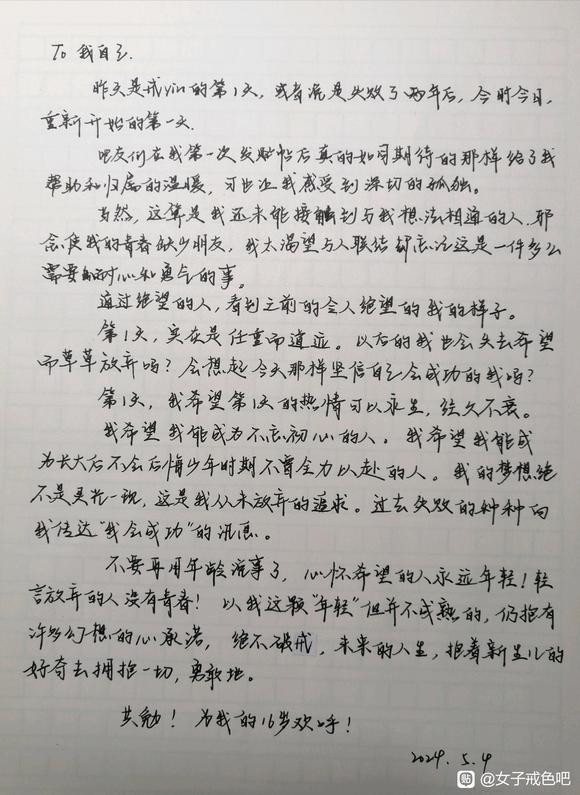 To 我自己.
昨天是戒yin的第1天，或者说是失败了两年后，今时今日，
重新开始的第一天.
吧友们在我第一次发贴帖后真的如同期待的那样给了我
帮助和归属的温暖，可也让我感受到深切的孤独。
当然，这算是我还未能接触到与我想法相通的人.邪
念使我的青春缺少朋友，我太渴望与人联结却忘记这是一件多么
需要耐心和勇气的事。
通过绝望的人，看到之前的令人绝望的我的样子。
第1天，实在是任重而道远。以后的我也会失去希望
而草草放弃吗？会想起今天那样坚信自己会成功的我吗？
第1天，我希望第1天的热情可以永生，经久不衰。
我希望我能成为不忘初心的人。我希望我能成
为长大后不会后悔少年时期不曾全力以赴的人。我的梦想绝
不是灵光一现，这是我从未放弃的追求。过去失败的种种向
我传达“我会成功”的讯息。
不要再用年龄说事了，心怀希望的人永远年轻！轻
言放弃的人没有青春！以我这颗“年轻”但并不成熟的，仍抱有
许多幻想的心承诺，绝不破戒，未来的人生，抱着新生儿的
好奇去拥抱一切，勇敢地。
共勉！为我的16岁欢呼！
2024.5.4
贴 @女子戒色吧